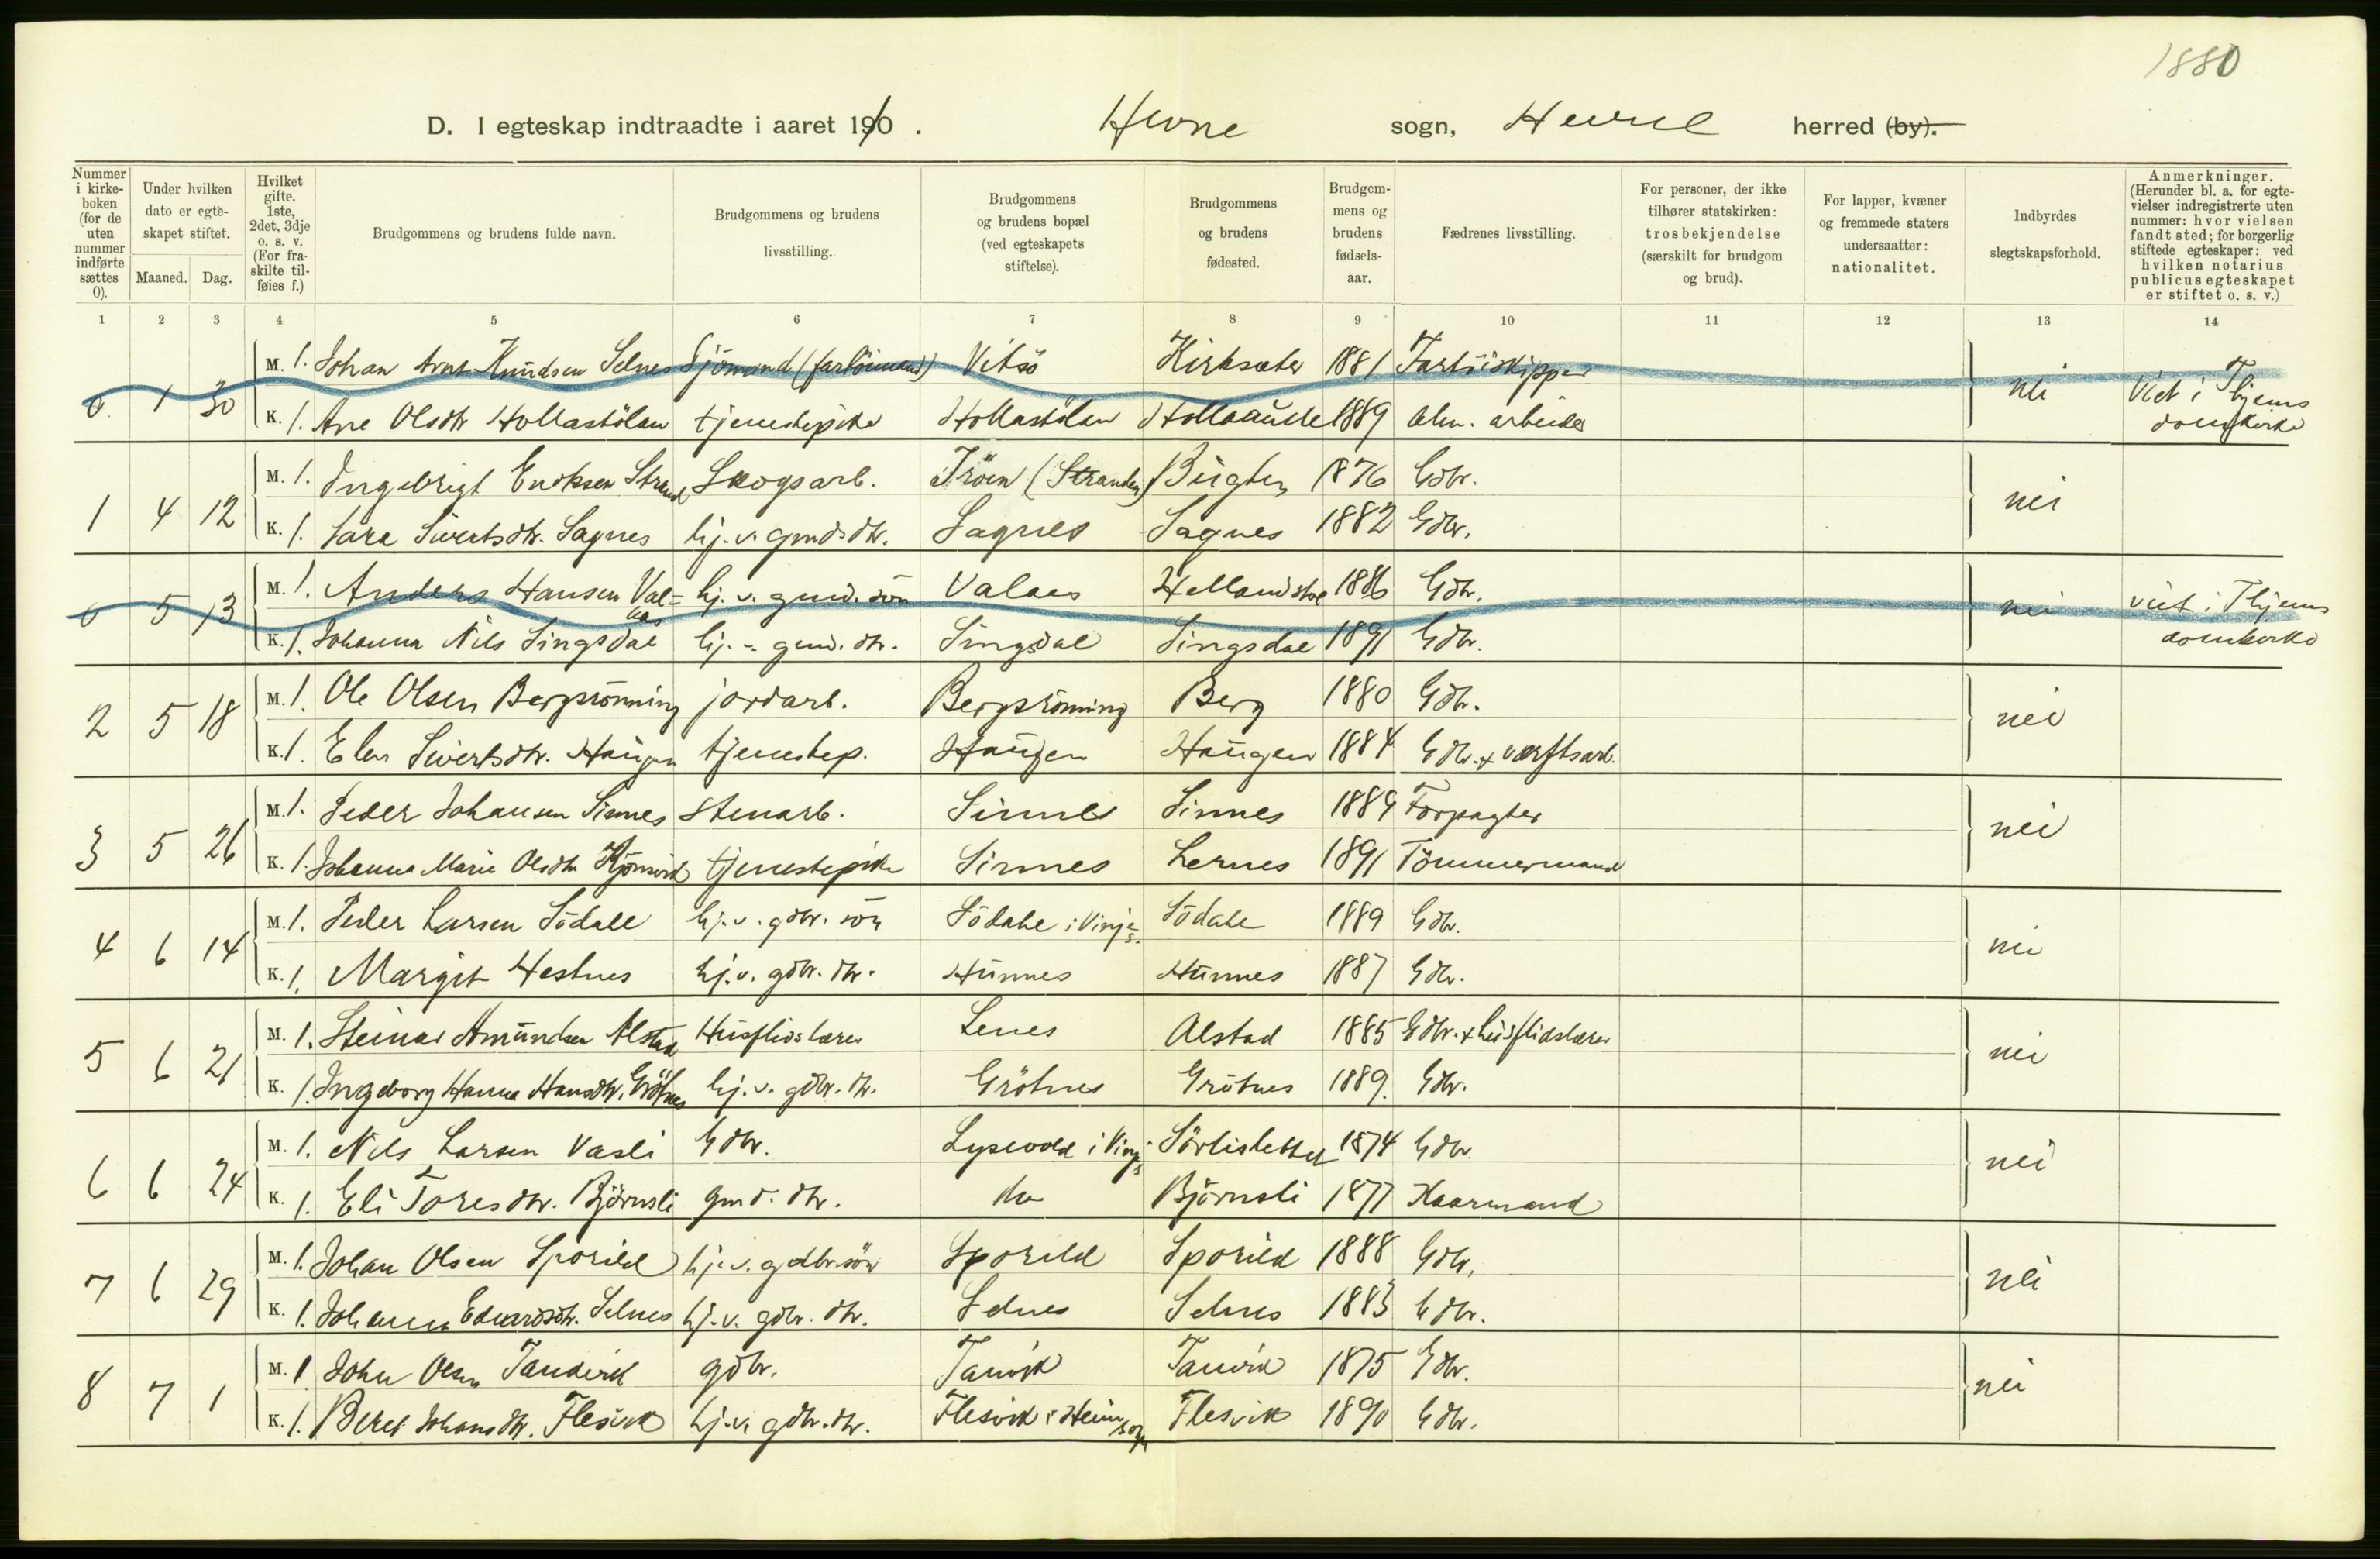 1880
D. I egteskap indtraadte i aaret 1910. Hevne sogn, Hevne herred (by).
Nummer i kirke-boken (for de uten nummer indførte sættes 0).
Under hvilken dato er egte-skapet stiftet.
Maaned. Dag.
Hvilket gifte. 1ste, 2det, 3dje o. s. v. (For fra-skilte til-føies f.)
Brudgommens og brudens fulde navn.
Brudgommens og brudens livsstilling.
Brudgommens og brudens bopæl (ved egteskapets stiftelse).
Brudgommens og brudens fødested.
Brudgom-mens og brudens fødsels-aar.
Fædrenes livsstilling.
For personer, der ikke tilhører statskirken: trosbekjendelse (særskilt for brudgom og brud).
For lapper, kvæner og fremmede staters undersaatter: nationalitet.
Indbyrdes slegtskapsforhold.
Anmerkninger. (Herunder bl. a. for egte-vielser indregistrerte uten nummer: hvor vielsen fandt sted; for borgerlig stiftede egteskaper: ved hvilken notarius publicus egteskapet er stiftet o. s. v.)
1 2 3 4 5 6 7 8 9 10 11 12 13 14
0 1 30 M. 1. Johan Arnt Knudsen Selnes Sjömand (fartöimand) Vitsö Kirksæter 1881 Fartöiskipper nei Viet i Thjems domkirke
K. 1. Ane Olsdtr Hollastölan tjenestepike Hollastölan 1889 alm. arbeider
1 4 12 M. 1. Ingebrigt Eriksen Strand Skogsarb. Tröen (Stranden) Bugten 1876 Gdbr. nei
K. 1. Sara Sivertsdtr. Sagnes hj. v. gmds dtr. Sagnes Sagnes 1882 Gdbr.
0 5 13 M. 1. Anders Hansen Val=aas hj. v. gmd. sön Valaes 1886 Gdbr. nei viet i Thjems domkirke
K. 1. Johanna Nils Singsdal hj. v. gmd. dtr. Singsdal Singsdal 1891 Gdbr.
2 5 18 M. 1. Ole Olsen Bergsrönning jordarb. Bergsrönning Berg 1880 Gdbr. nei
K. 1. Elen Sivertsdtr. Haugen tjenestep. Haugen Haugen 1884 Gdbr. + værftsarb.
3 5 26 M. 1. Peder Johansen Sinnes Stenarb. Sinnes Sinnes 1889 Forpagter nei
K. 1. Johanna Marie Olsdtr tjenestepike Sinnes Lernes 1891 Tömmermand
4 6 14 M. 1. Peder Larsen Södale hj. v. gdbr. sön Södahl i Vinje s. Södahl 1889 Gdbr. nei
K. 1. Margit Hestnes hj. v. gdbr. dtr. Hünnes Hünnes 1887 Gdbr.
5 6 21 M. 1. Steinar Amundsen Alstad Husflidslærer Lenes Alstad 1885 Gdbr. + husflidslærer nei
K. 1. Ingeborg Hanna Hansdtr. Grötnes hj. v. gdbr. dtr. Grötnes Grötnes 1889. Gdbr.
6 6 24 M. 1. Nils Larsen Vasli Gdbr. Lysvold i Vinje s Sörlisletten 1874 Gdbr. nei
K. 1. Eli Toresdtr. Björnsli gmd. dtr. do Björnsli 1877 Kaarmand
7 6 29 M. 1. Johan Olsen Sporild hj. v. gdbr. sön Sporild Sporild 1888 Gdbr. nei
K. 1. Johanna Edvardsdtr. Selnes hj. v. gdbr. dtr. Selnes Selnes 1883 Gdbr.
8 7 1 M. 1 John Olsen Tanvik gdbr. Tanvik Tanvik 1875 Gdbr. nei
K. 1. Beret Johansdtr. Flesvik hj. v. gdbr. dtr. Flesvik i Heim sogn Flesvik 1890 Gdbr.